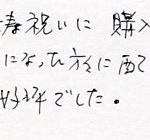 寿祝いに 購入
になった方々に配て
好評でした。